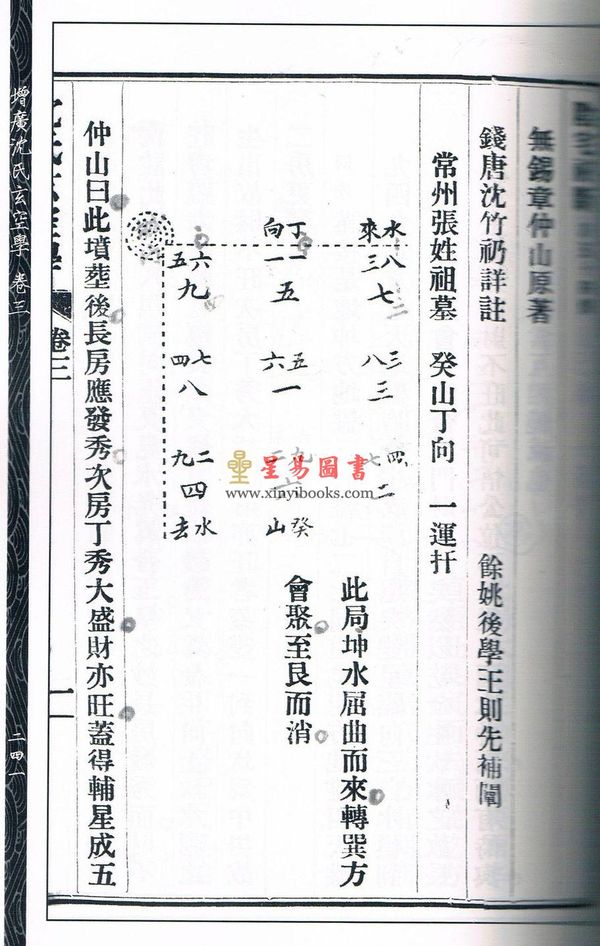 無錫章仲山原著
錢唐沈竹礽詳註
餘姚後學王則先補闡
常州張姓祖墓 癸山丁向 一運扞
水來
八三
七
三八
三
四七
二
丁向
一一
五
五六
一
九二
六
癸山
六五
九
七四
八
二九
四
水去
此局坤水屈曲而來轉巽方
會聚至艮而消
仲山曰此墳葬後長房應發秀次房丁秀大盛財亦旺蓋得輔星成五
卷三
一
增廣沈氏玄空學 卷三
二四一
星易圖書
www.xinyibooks.com